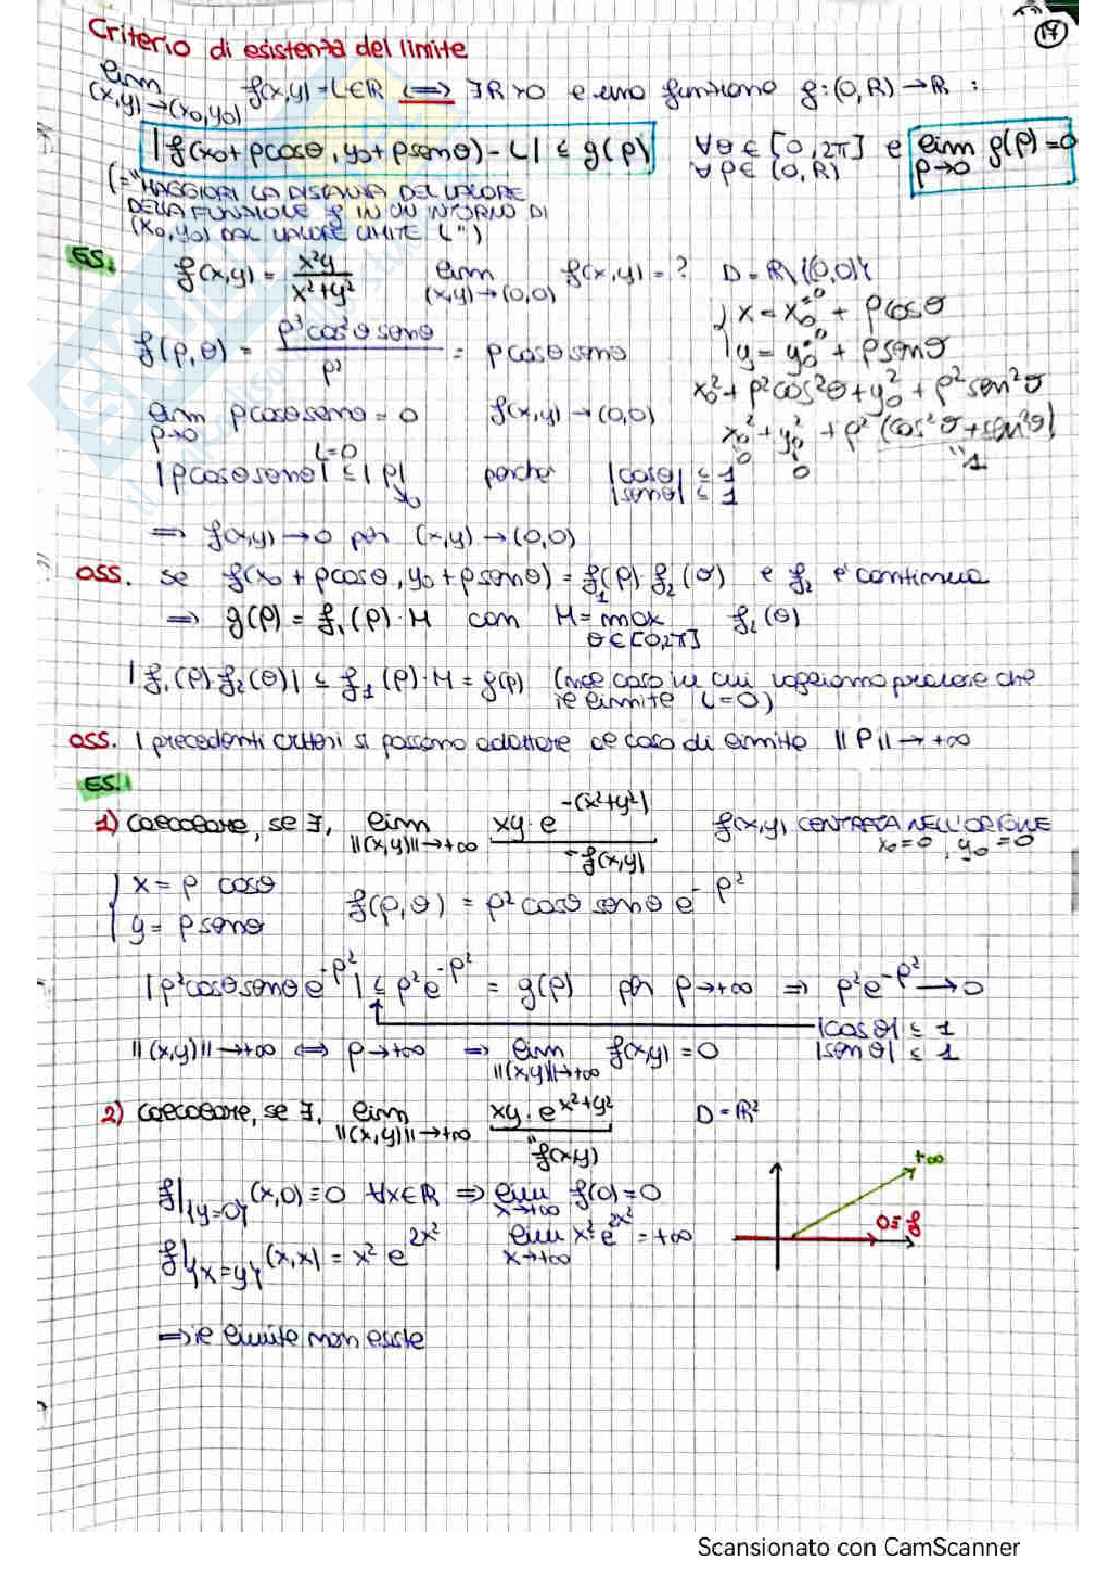 17
Criterio di esistenza del limite
lim f(x,y) = L∈ℝ ⟺ ∃R>0 e una funzione g:(0,R)→ℝ :
(x,y)→(x₀,y₀)
|f(x₀+ρcosθ, y₀+ρsenθ) - L| ≤ g(ρ) ∀θ∈[0,2π] e lim g(ρ)=0
∀ρ∈(0,R) ρ→0
(="MAGGIORI LA DISTANZA DEL VALORE
DELLA FUNZIONE f IN UN INTORNO DI
(x₀,y₀) DAL VALORE LIMITE L")
ES.
f(x,y) = x²y / x²+y² lim f(x,y) = ? D = ℝ\{(0,0)}
(x,y)→(0,0)
{ x = x₀ + ρcosθ
y = y₀ + ρsenθ
f(ρ,θ) = ρ³cos²θ senθ / ρ² = ρcosθsenθ
x₀² + ρ²cos²θ + y₀² + ρ²sen²θ
lim ρcosθsenθ = 0 f(x,y) → (0,0)
ρ→0
x₀² + y₀² + ρ² (cos²θ + sen²θ)
0 0 "1
L=0
|ρcosθsenθ| ≤ |ρ| perché |cosθ| ≤ 1
→0 |senθ| ≤ 1
⟹ f(x,y) → 0 per (x,y) → (0,0)
OSS. se f(x₀ + ρcosθ, y₀+ρsenθ) = f₁(ρ)·f₂(θ) e f₂ è continua
⟹ g(ρ) = f₁(ρ)·M con M = max f₂(θ)
θ∈[0,2π]
|f₁(ρ)·f₂(θ)| ≤ f₁(ρ)·M = g(ρ) (nel caso in cui vogliamo provare che
il limite L=0)
OSS. I precedenti criteri si possono adattare al caso di limite ||P|| → +∞
ES.1
1) calcolare, se ∃, lim xy·e^-(x²+y²) f(x,y) CENTRATA NELL'ORIGINE
||(x,y)||→+∞ = f(x,y) x₀=0, y₀=0
{ x = ρ cosθ
y = ρsenθ
f(ρ,θ) = ρ²cosθ senθ e^-ρ²
|ρ²cosθsenθ e^-ρ²| ≤ ρ²e^-ρ² = g(ρ) per ρ→+∞ ⟹ ρ²e^-ρ² → 0
|cosθ| ≤ 1
||(x,y)||→+∞ ⟺ ρ→+∞ ⟹ lim f(x,y) = 0 |senθ| ≤ 1
||(x,y)||→+∞
2) calcolare, se ∃, lim xy·e^x²+y² D = ℝ²
||(x,y)||→+∞ "f(x,y)
f|{y=0} (x,0) ≡ 0 ∀x∈ℝ ⟹ lim f(0) = 0
x→+∞
f|{x=y} (x,x) = x² e^2x² lim x²e^2x² = +∞
x→+∞
+∞
0=f
⟹ il limite non esiste
Scansionato con CamScanner